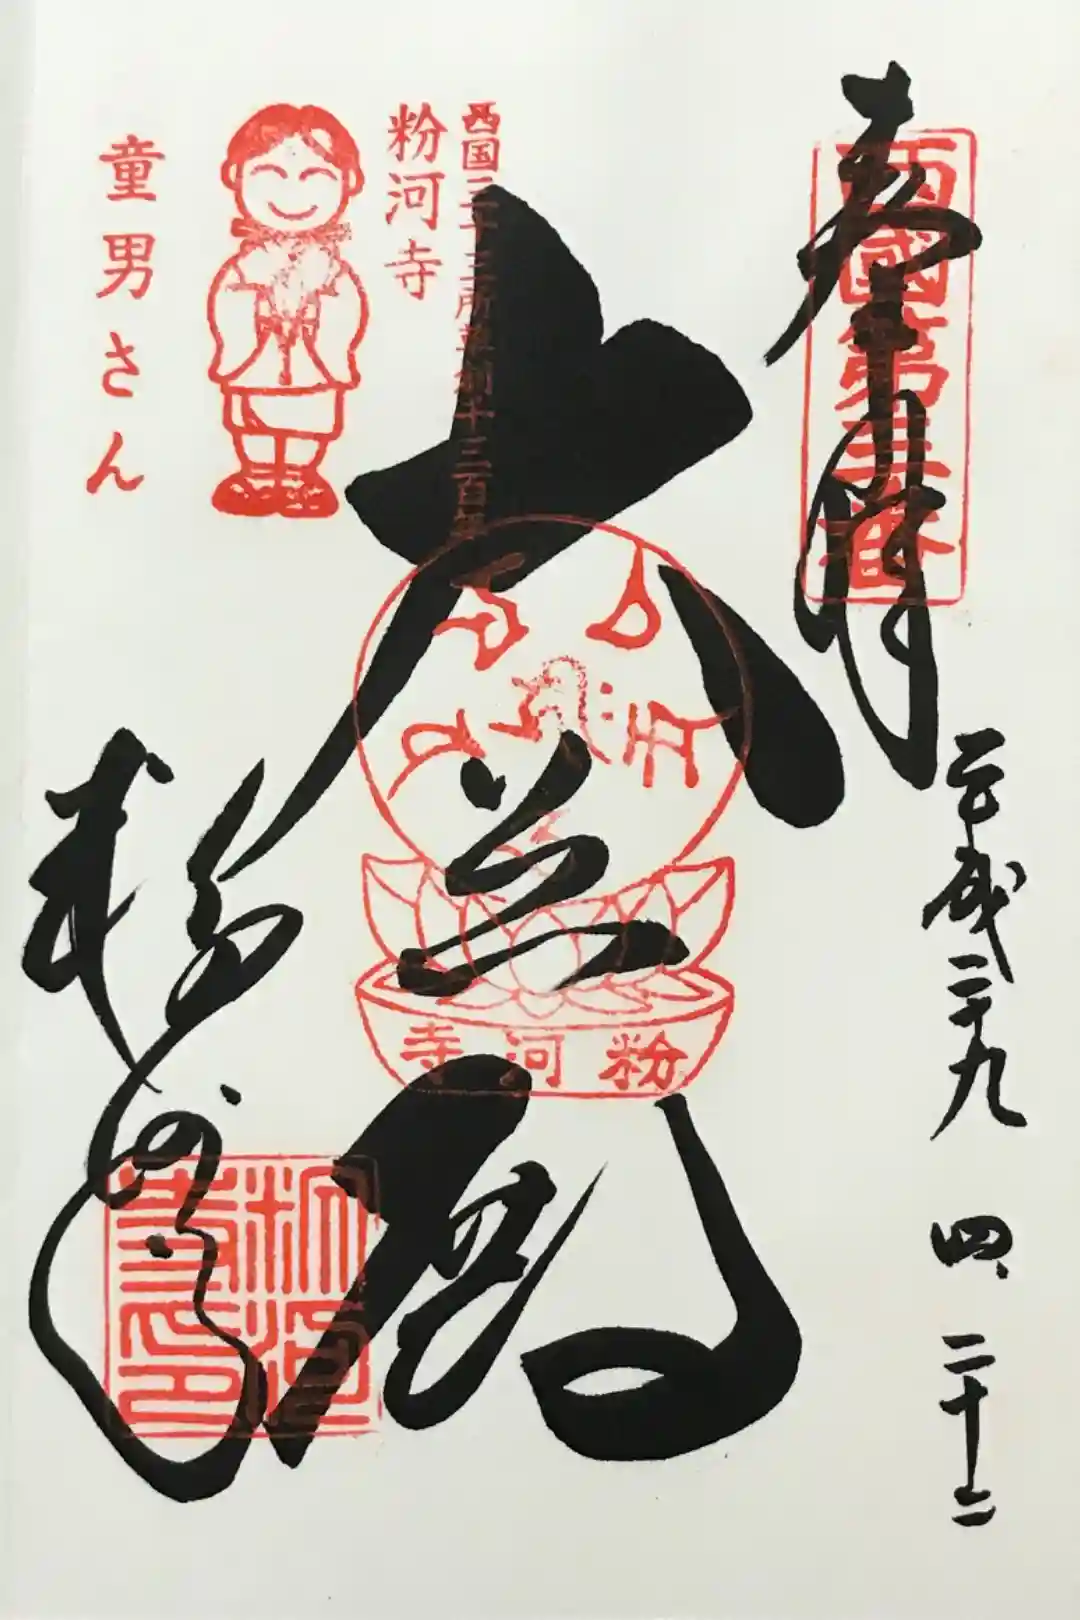 奉拝
西國第三番
平成二十九 四、二十二
大慈閣
西国三十三所草創千三百年
粉河寺
童男さん
粉河寺
粉河寺
粉河寺印